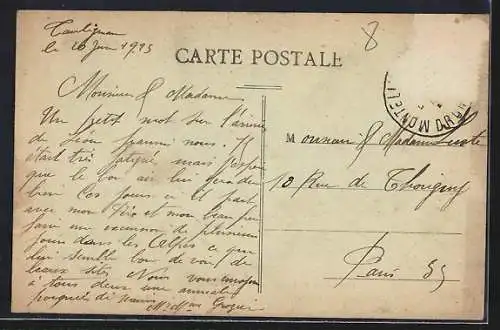 Taulignan
le 26 Juin 1915
8
CARTE POSTALE
Monsieur & Madame
Un petit mot sur l'arrivée
de Léon parmi nous. Il
était très fatigué mais j'espère
que le bon air lui fera du
bien ces jours ci il part
avec mon Père et mon beau père
faire une excursion de plusieurs
jours dans les Alpes ce que
lui semble bon de voir de
beaux sites. Nous vous envoyons
à tous deux une amicale
poignée de mains
Mr & Mme
Monsieur & Madame
10 Rue de Thorigny
Paris
MONTELI